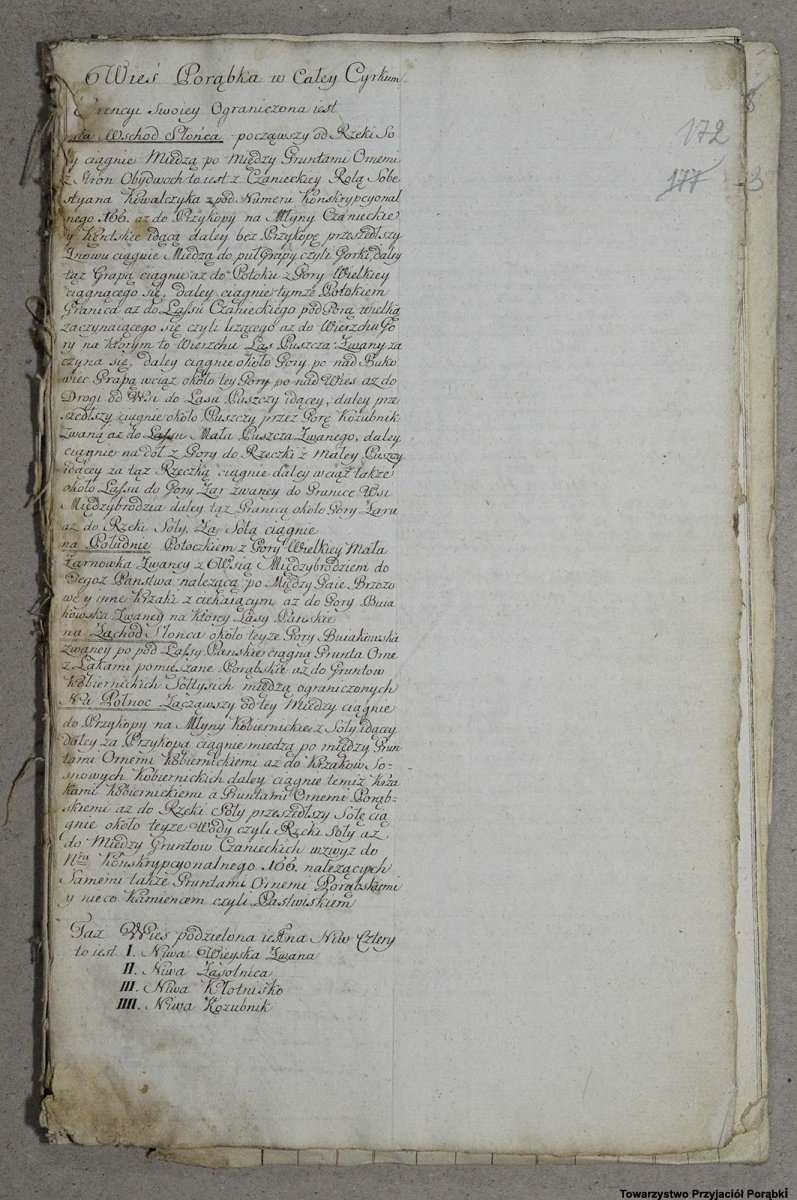 Wieś Porąbka w Całey Cyrkum
ferencyi Swoiey Ograniczona iest
na Wschod Słońca począwszy od Rzeki So
ły ciągnie Miedzą po Między Gruntami Ornemi
z Stron Obydwoch to iest z Czanieckiey Rolą Sobe
styana Kowalczyka z pod Numeru Konskrypcyonal
nego 166. aż do Przykopy na Młyny Czanieckie
y Kentskie idącą daley bez Przykopę przeszedłszy
znowu ciągnie Miedzą do pul Grapy czyli Gorki, daley
tąż Grapą ciągnie aż do Potoku z Gory Wielkiey
ciągnącego się, daley ciągnie tymże Potokiem
Granica aż do Lassu Czanieckiego pod Gorą wielką
zaczynaiącego się czyli lezącego aż do Wierzchu Go
ry na ktorym to Wierzchu Las Puszcza Zwany za
czyna się, daley ciągnie około Gory po nad Buko
wiec Grapą wciąż około tey Gory po nad Wieś aż do
Drogi od Wsi do Lasu Puszczy idącey, daley prze
szedłszy ciągnie około Puszczy przez Gorę Kozubnik
zwaną aż do Lassu Mała Puszcza Zwanego, daley
ciągnie na doł z Gory do Rzeczki z Małey Puszczy
idącey za tąż Rzeczką ciągnie daley wciąż także
około Lassu do Gory Zar zwaney do Granice Wsi
Międzybrodzia daley tąż Granicą około Gory Zaru
aż do Rzeki Soły. Za Sołą ciągnie
na Południe Potoczkiem z Gory Wielkiey Mała
Zarnowka Zwaney z Wsią Międzybrodziem do
tegoż Państwa należącą po Między Gaie Brzozo
we y inne Krzaki z ciekaiącym aż do Gory Buia
kowska Zwaney na ktorey Lasy Pańskie
na Zachod Słonca około teyże Gory Buiakowska
zwaney po pod Lassy Panskie ciągną Grunta Orne
z Łąkami pomieszane Porąbskie aż do Gruntow
Kobiernickich Sołtysich miedzą ograniczonych
Na Połnoc Zacząwszy od tey Miedzy ciągnie
do Przykopy na Młyny Kobiernickie z Soły idącey
daley za Przykopą ciągnie miedzą po między Grun
tami Ornemi Kobiernickiemi aż do Krzakow So-
snowych Kobiernickich daley ciągnie temiż Krza
kami Kobiernickiemi a Gruntami Ornemi Porąb-
skiemi aż do Rzeki Soły przeszedłszy Sołę cią
gnie około teyże Wody czyli Rzeki Soły aż
do Miedzy Gruntow Czanieckich wzwyż do
Nru Konskrypcyonalnego 166. należących
Samemi także Gruntami Ornemi Porąbskiemi
y nieco Kamiencem czyli Pastwiskiem
Taż Wieś podzielona iest na Niw Cztery
to iest I. Niwa Wieyska Zwana
II. Niwa Zasolnica
III. Niwa Kłotnisko
IIII. Niwa Kozubnik
172
177
8
3
Towarzystwo Przyjaciół Porąbki